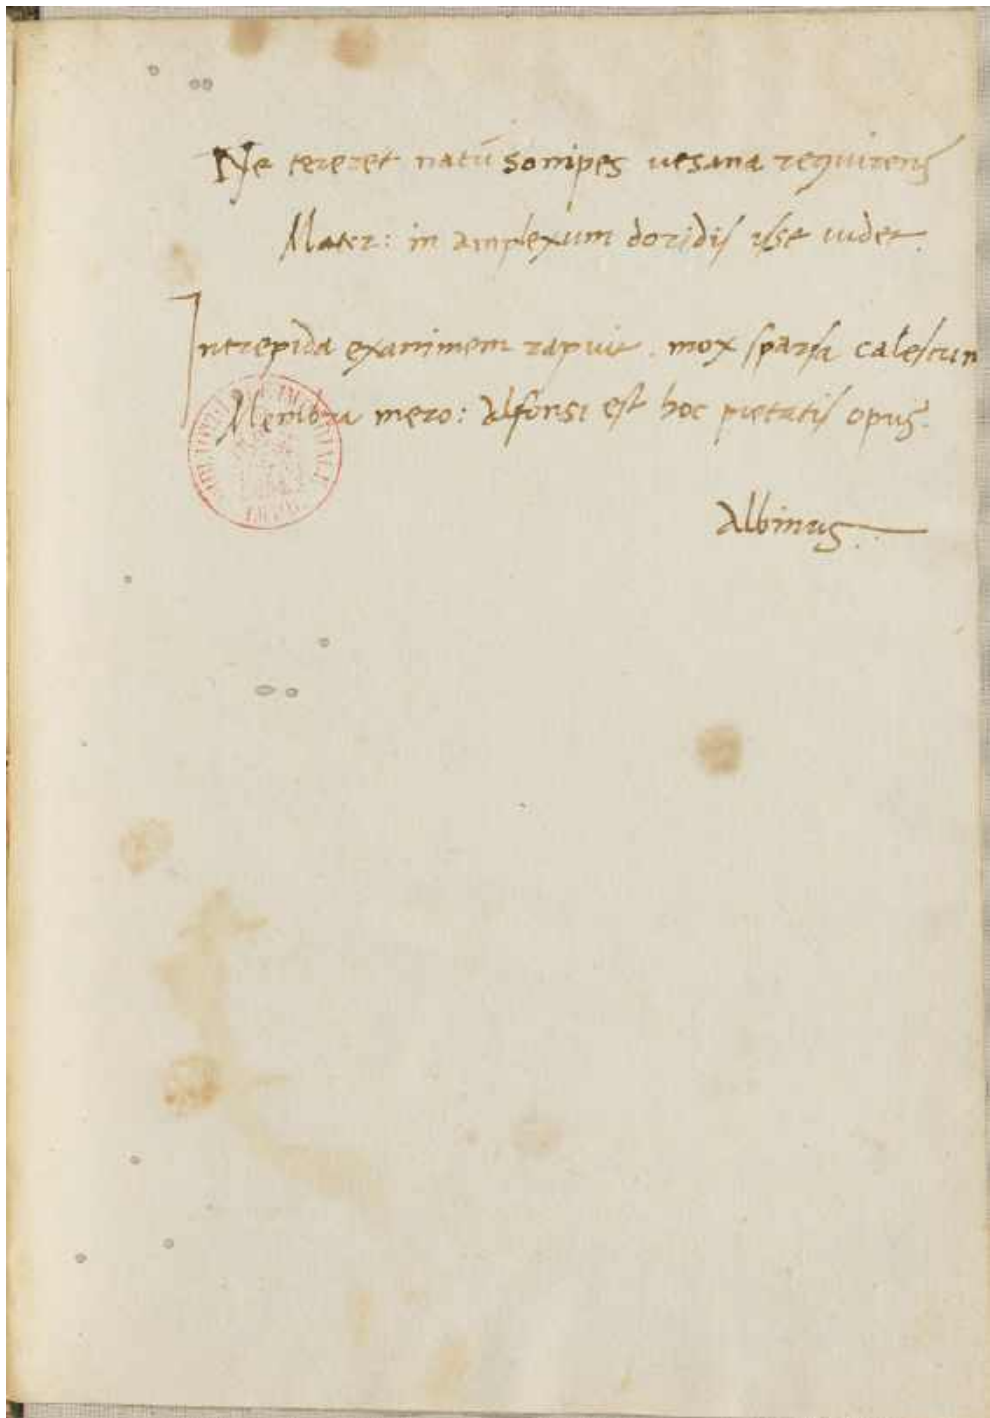 Ne tereret natū sonipes uesana requirens
Mater: in amplexum doridis isse uidet.
Intrepida exanimem rapuit. mox sparsa calescun
Membra mero: Alfonsi est hoc pietatis opus.
Albinus.